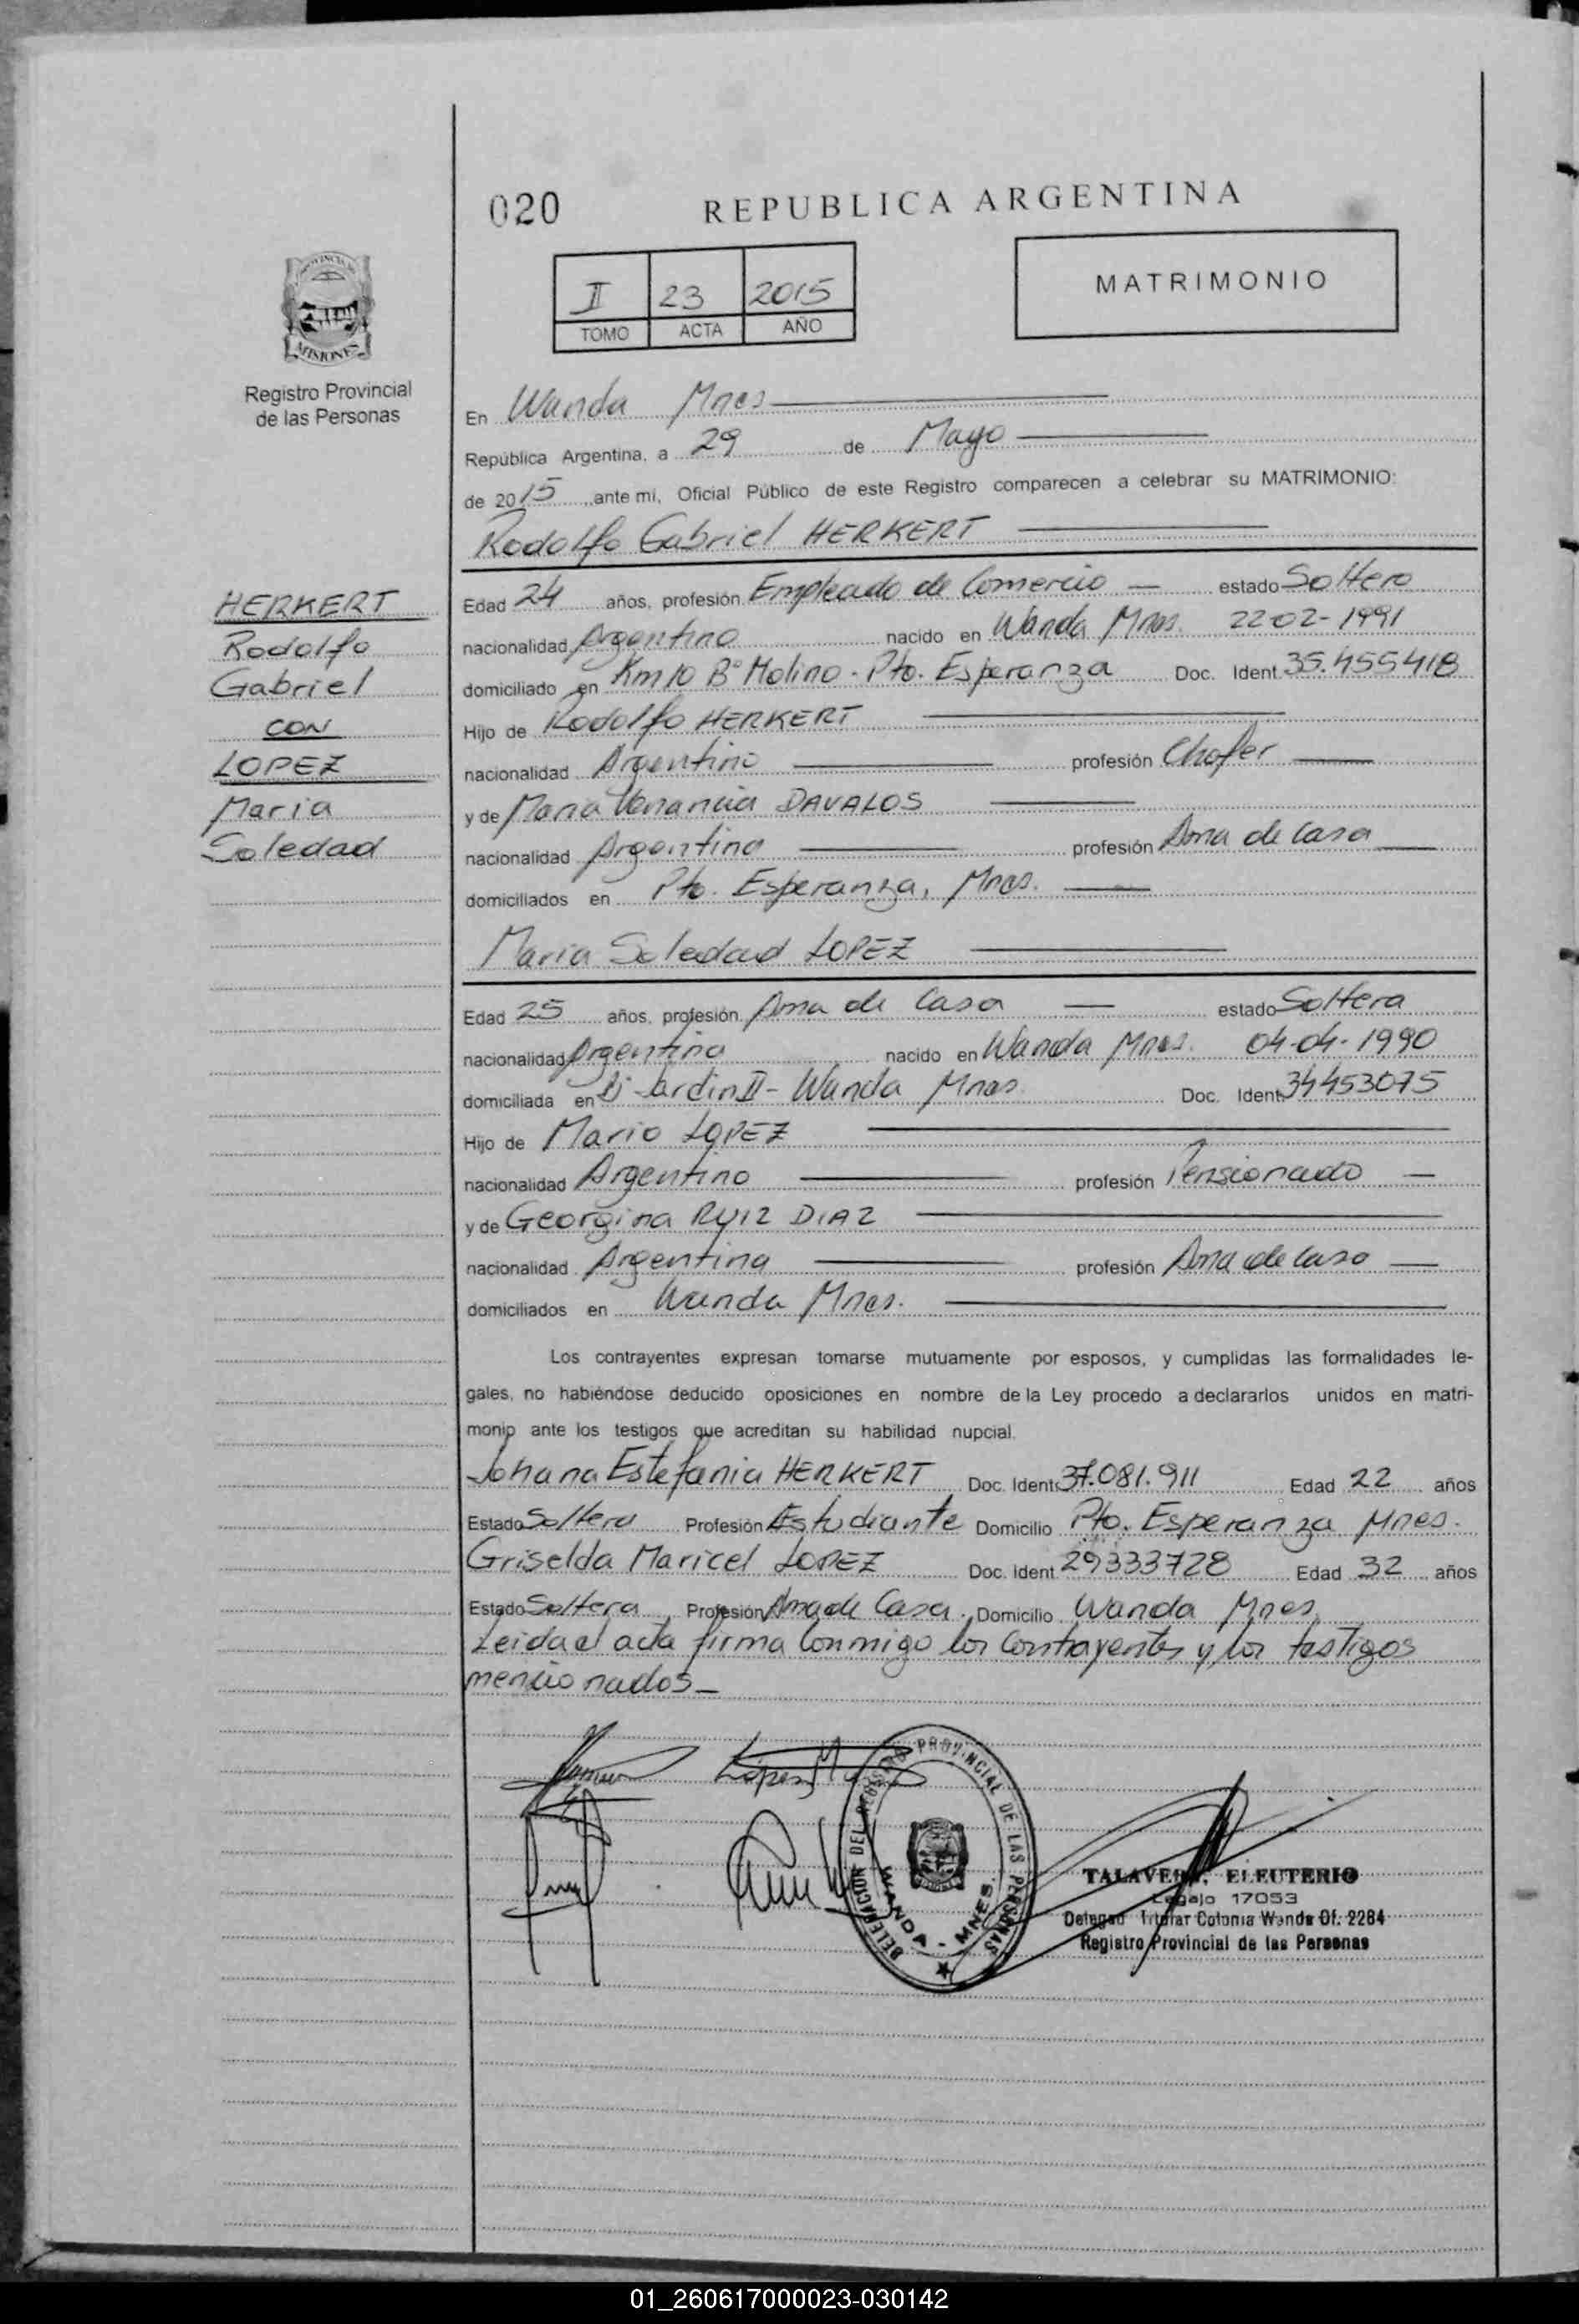 020
REPUBLICA ARGENTINA
II 23 2015
TOMO ACTA AÑO
MATRIMONIO
PROVINCIA DE
MISIONES
Registro Provincial
de las Personas
En Wanda Mnes
República Argentina, a 29 de Mayo
de 2015 ante mi, Oficial Público de este Registro comparecen a celebrar su MATRIMONIO:
Rodolfo Gabriel HERKERT
HERKERT
Rodolfo
Gabriel
CON
LOPEZ
Maria
Soledad
Edad 24 años, profesión Empleado de Comercio estado Soltero
nacionalidad Argentino nacido en Wanda Mnes. 22-02-1991
domiciliado en Km 10 Bº Molino - Pto. Esperanza Doc. Ident. 35.455418
Hijo de Rodolfo HERKERT
nacionalidad Argentino profesión Chofer
y de Maria Venancia DAVALOS
nacionalidad Argentina profesión Ama de Casa
domiciliados en Pto. Esperanza, Mnes.
Maria Soledad LOPEZ
Edad 25 años, profesión Ama de Casa estado Soltera
nacionalidad Argentina nacido en Wanda Mnes. 04-04-1990
domiciliada en Jardin II - Wanda Mnes. Doc. Ident. 34453075
Hijo de Mario LOPEZ
nacionalidad Argentino profesión Pensionado
y de Georgina RUIZ DIAZ
nacionalidad Argentina profesión Ama de Casa
domiciliados en Wanda Mnes.
Los contrayentes expresan tomarse mutuamente por esposos, y cumplidas las formalidades le-
gales, no habiéndose deducido oposiciones en nombre de la Ley procedo a declararlos unidos en matri-
monio ante los testigos que acreditan su habilidad nupcial.
Johana Estefania HERKERT Doc. Ident. 37.081.911 Edad 22 años
Estado Soltera Profesión Estudiante Domicilio Pto. Esperanza Mnes.
Griselda Maricel LOPEZ Doc. Ident. 29333728 Edad 32 años
Estado Soltera Profesión Ama de Casa. Domicilio Wanda Mnes.
Leida el acta firma conmigo los contrayentes y los testigos
mencionados
Lopez M
DELEGACION DEL REGISTRO PROVINCIAL DE LAS PERSONAS
WANDA - MNES.
TALAVERA, ELEUTERIO
Legajo 17053
Delegado Titular Colonia Wanda Of. 2284
Registro Provincial de las Personas
01_260617000023-030142